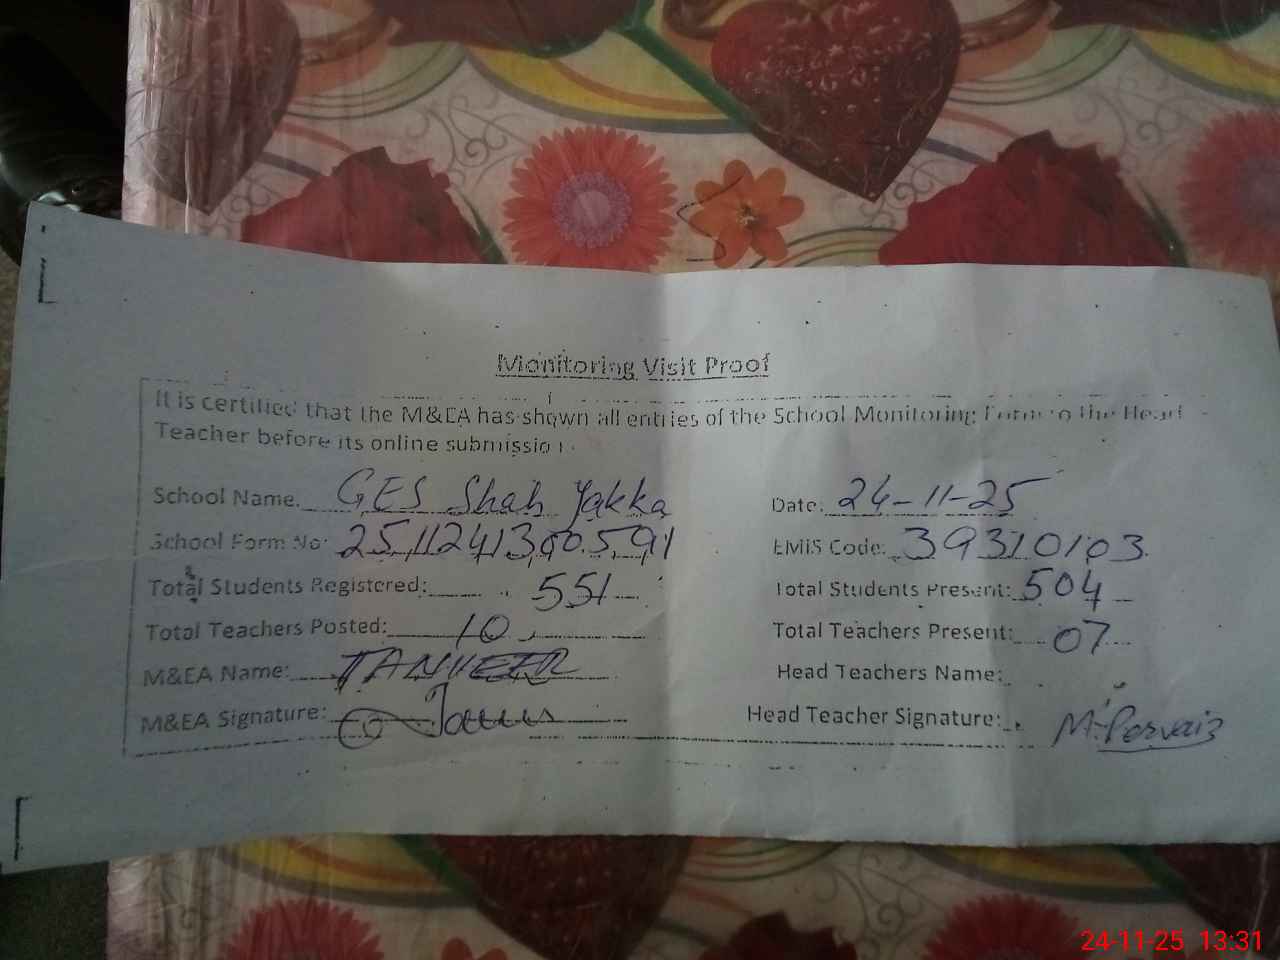 Monitoring Visit Proof
It is certified that the M&EA has shown all entries of the School Monitoring Form to the Head
Teacher before its online submission.
School Name: GES Shah Yakka Date: 24-11-25
School Form No: 2511241300591 EMIS Code: 39310103
Total Students Registered: 551 Total Students Present: 504
Total Teachers Posted: 10 Total Teachers Present: 07
M&EA Name: TANVEER Head Teachers Name:
M&EA Signature: Head Teacher Signature: M. Pervaiz
24-11-25 13:31